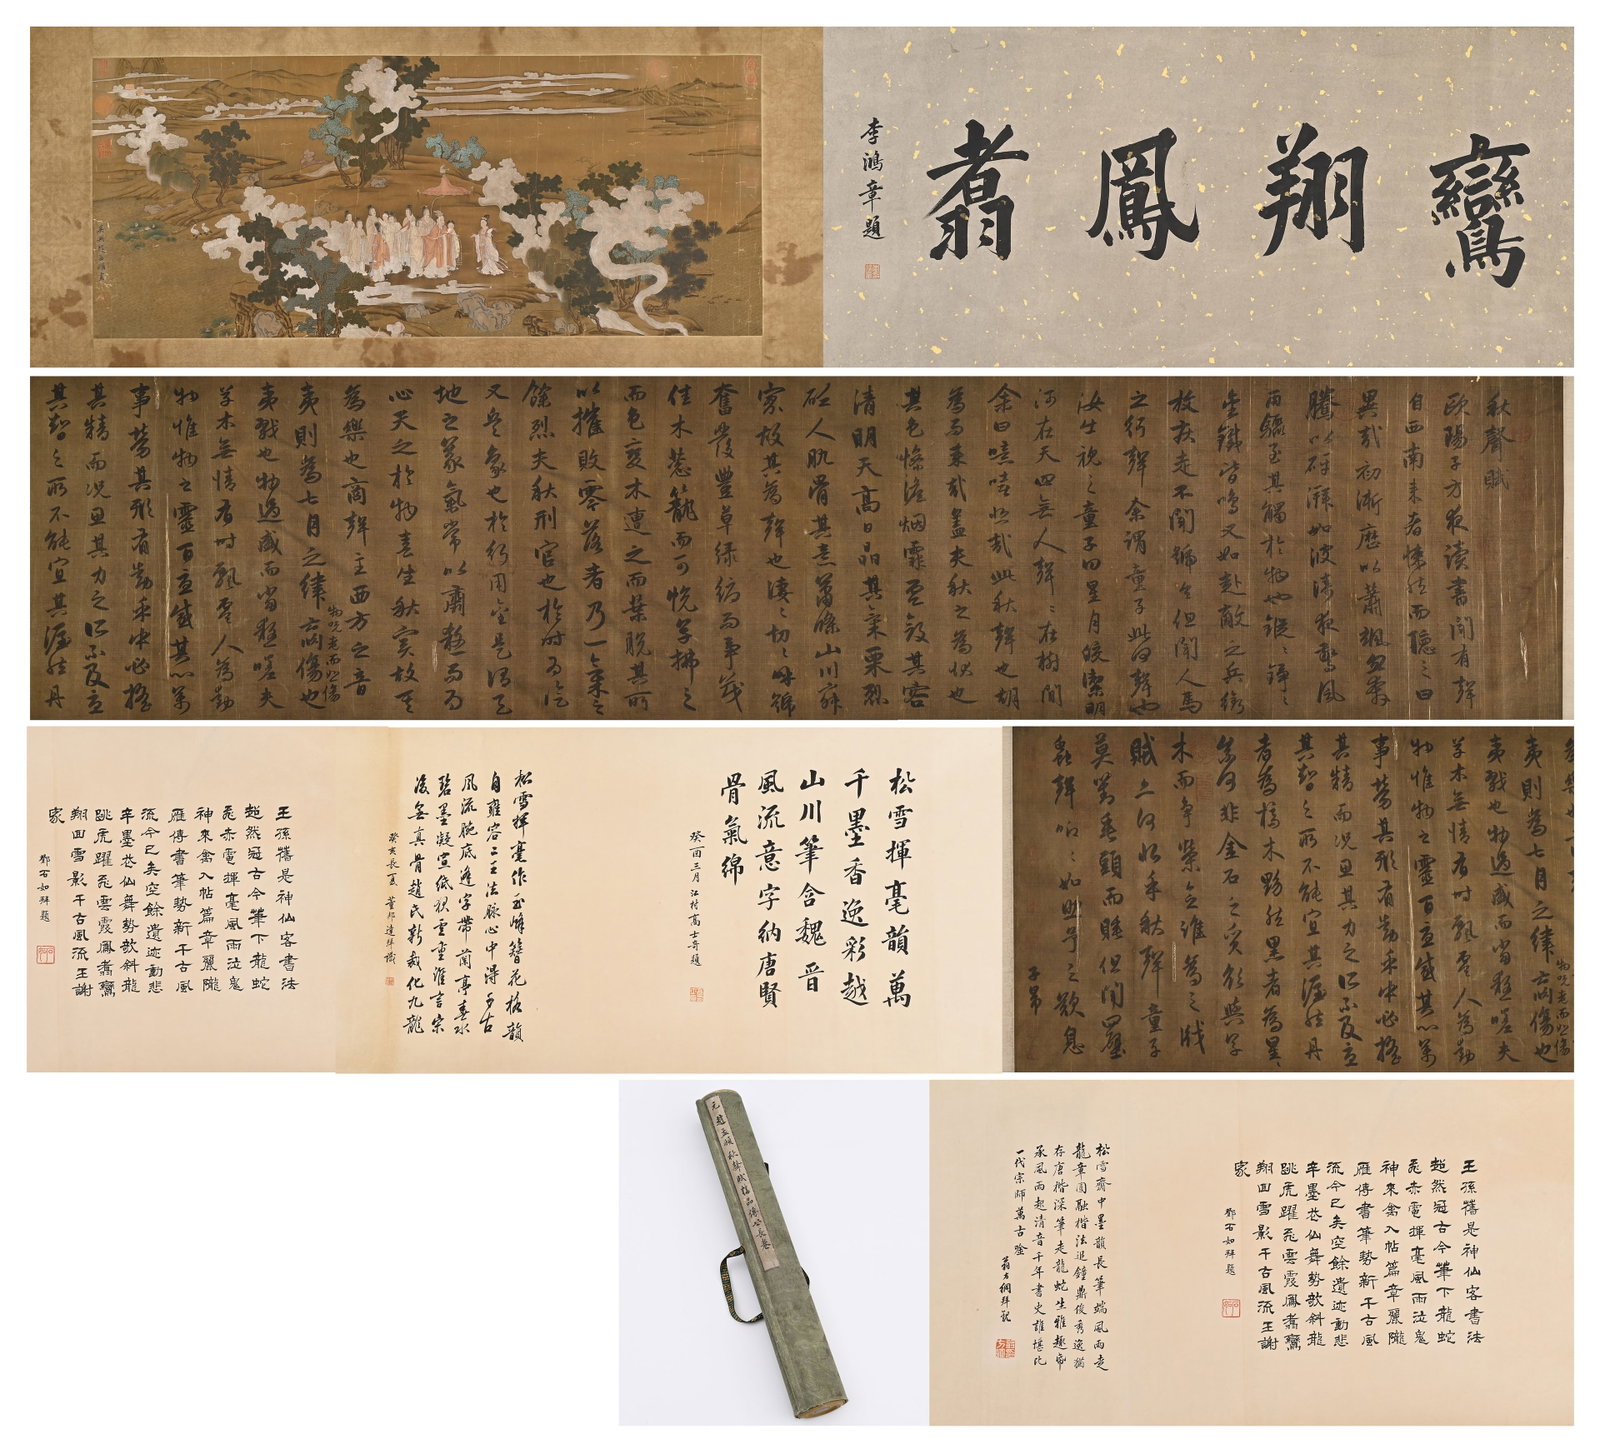 鸞翔鳳翥
李鴻章題
秋聲賦
歐陽子方夜讀書聞有聲
自西南来者悚然而聽之曰
異哉初淅瀝以蕭颯忽奔
騰以砰湃如波濤夜驚風
雨驟至其觸於物也鏦〻錚〻
金鐵皆鳴又如赴敵之兵銜
枚疾走不聞號令但聞人馬
之行聲余謂童子此何聲也
汝出視之童子曰星月皎潔明
河在天四無人聲〻在樹間
余曰噫嘻悲哉此秋聲也胡
為而来哉蓋夫秋之為狀也
其色慘澹烟霏雲斂其容
清明天高日晶其氣栗烈
砭人肌骨其意蕭條山川寂
寥故其為聲也淒〻切〻呼號
奮發豐草綠縟而爭茂
佳木葱蘢而可悅草拂之
而色變木遭之而葉脫其所
以摧敗零落者乃一氣之
餘烈夫秋刑官也於時為陰
又兵象也於行用金是謂天
地之義氣常以肅殺而為
心天之於物春生秋實故其
為樂也商聲主西方之音
夷則為七月之律商傷也
物既老而悲傷
夷戮也物過盛而當殺嗟夫
草木無情有時飄零人為動
物惟物之靈百憂感其心萬
事勞其形有動乎中必搖
其精而况思其力之所不及憂
其智之所不能宜其渥然丹
夷則為七月之律商傷也
物既老而悲傷
夷戮也物過盛而當殺嗟夫
草木無情有時飄零人為動
物惟物之靈百憂感其心萬
事勞其形有動乎中必搖
其精而况思其力之所不及憂
其智之所不能宜其渥然丹
者為槁木黟然黑者為星〻
奈何非金石之質欲與草
木而爭榮念誰為之戕
賊亦何恨乎秋聲童子
莫對垂頭而睡但聞四壁
蟲聲唧〻如助予之歎息
子昂
松雪揮毫韻萬
千墨香逸彩越
山川筆含魏晋
風流意字納唐賢
骨氣綿
癸酉三月江村高士奇題
松雪揮毫作玉峰簪花格韻
自雍容二王法脉心中得千古
風流腕底逢字帶蘭亭春水
碧墨凝宣紙秋雲重誰言宋
後無真骨趙氏新裁化九龍
癸亥長夏董邦達拜識
王孫舊是神仙客書法
超然冠古今筆下龍蛇
飛赤電揮毫風雨泣鬼
神來禽入帖篇章麗隴
雁傳書筆勢新千古風
流今已矣空餘遺迹動悲
辛墨卷仙舞勢欹斜龍
跳虎躍飛雲霞鳳翥鸞
翔回雪影千古風流王謝
家
鄧石如拜題
王孫舊是神仙客書法
超然冠古今筆下龍蛇
飛赤電揮毫風雨泣鬼
神來禽入帖篇章麗隴
雁傳書筆勢新千古風
流今已矣空餘遺迹動悲
辛墨卷仙舞勢欹斜龍
跳虎躍飛雲霞鳳翥鸞
翔回雪影千古風流王謝
家
鄧石如拜題
松雪齋中墨韻長筆端風雨走
龍章圓融楷法追鍾鼎俊秀逸猶
存唐楷深筆走龍蛇生雅趣帘
承風雨起清音千年書史誰堪比
一代宗師萬古吟
翁方綱拜觀
元趙孟頫秋聲賦